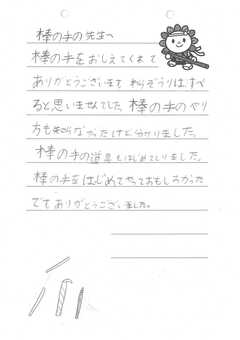 棒の手の先生へ
棒の手をおしえてくれて
ありがとうございます わらぞうりはすべ
ると思いませんでした。棒の手のやり
方も知らなかったけど分かりました。
棒の手の道具もはじめてしりました。
棒の手をはじめてやっておもしろかった
ですありがとうございました。